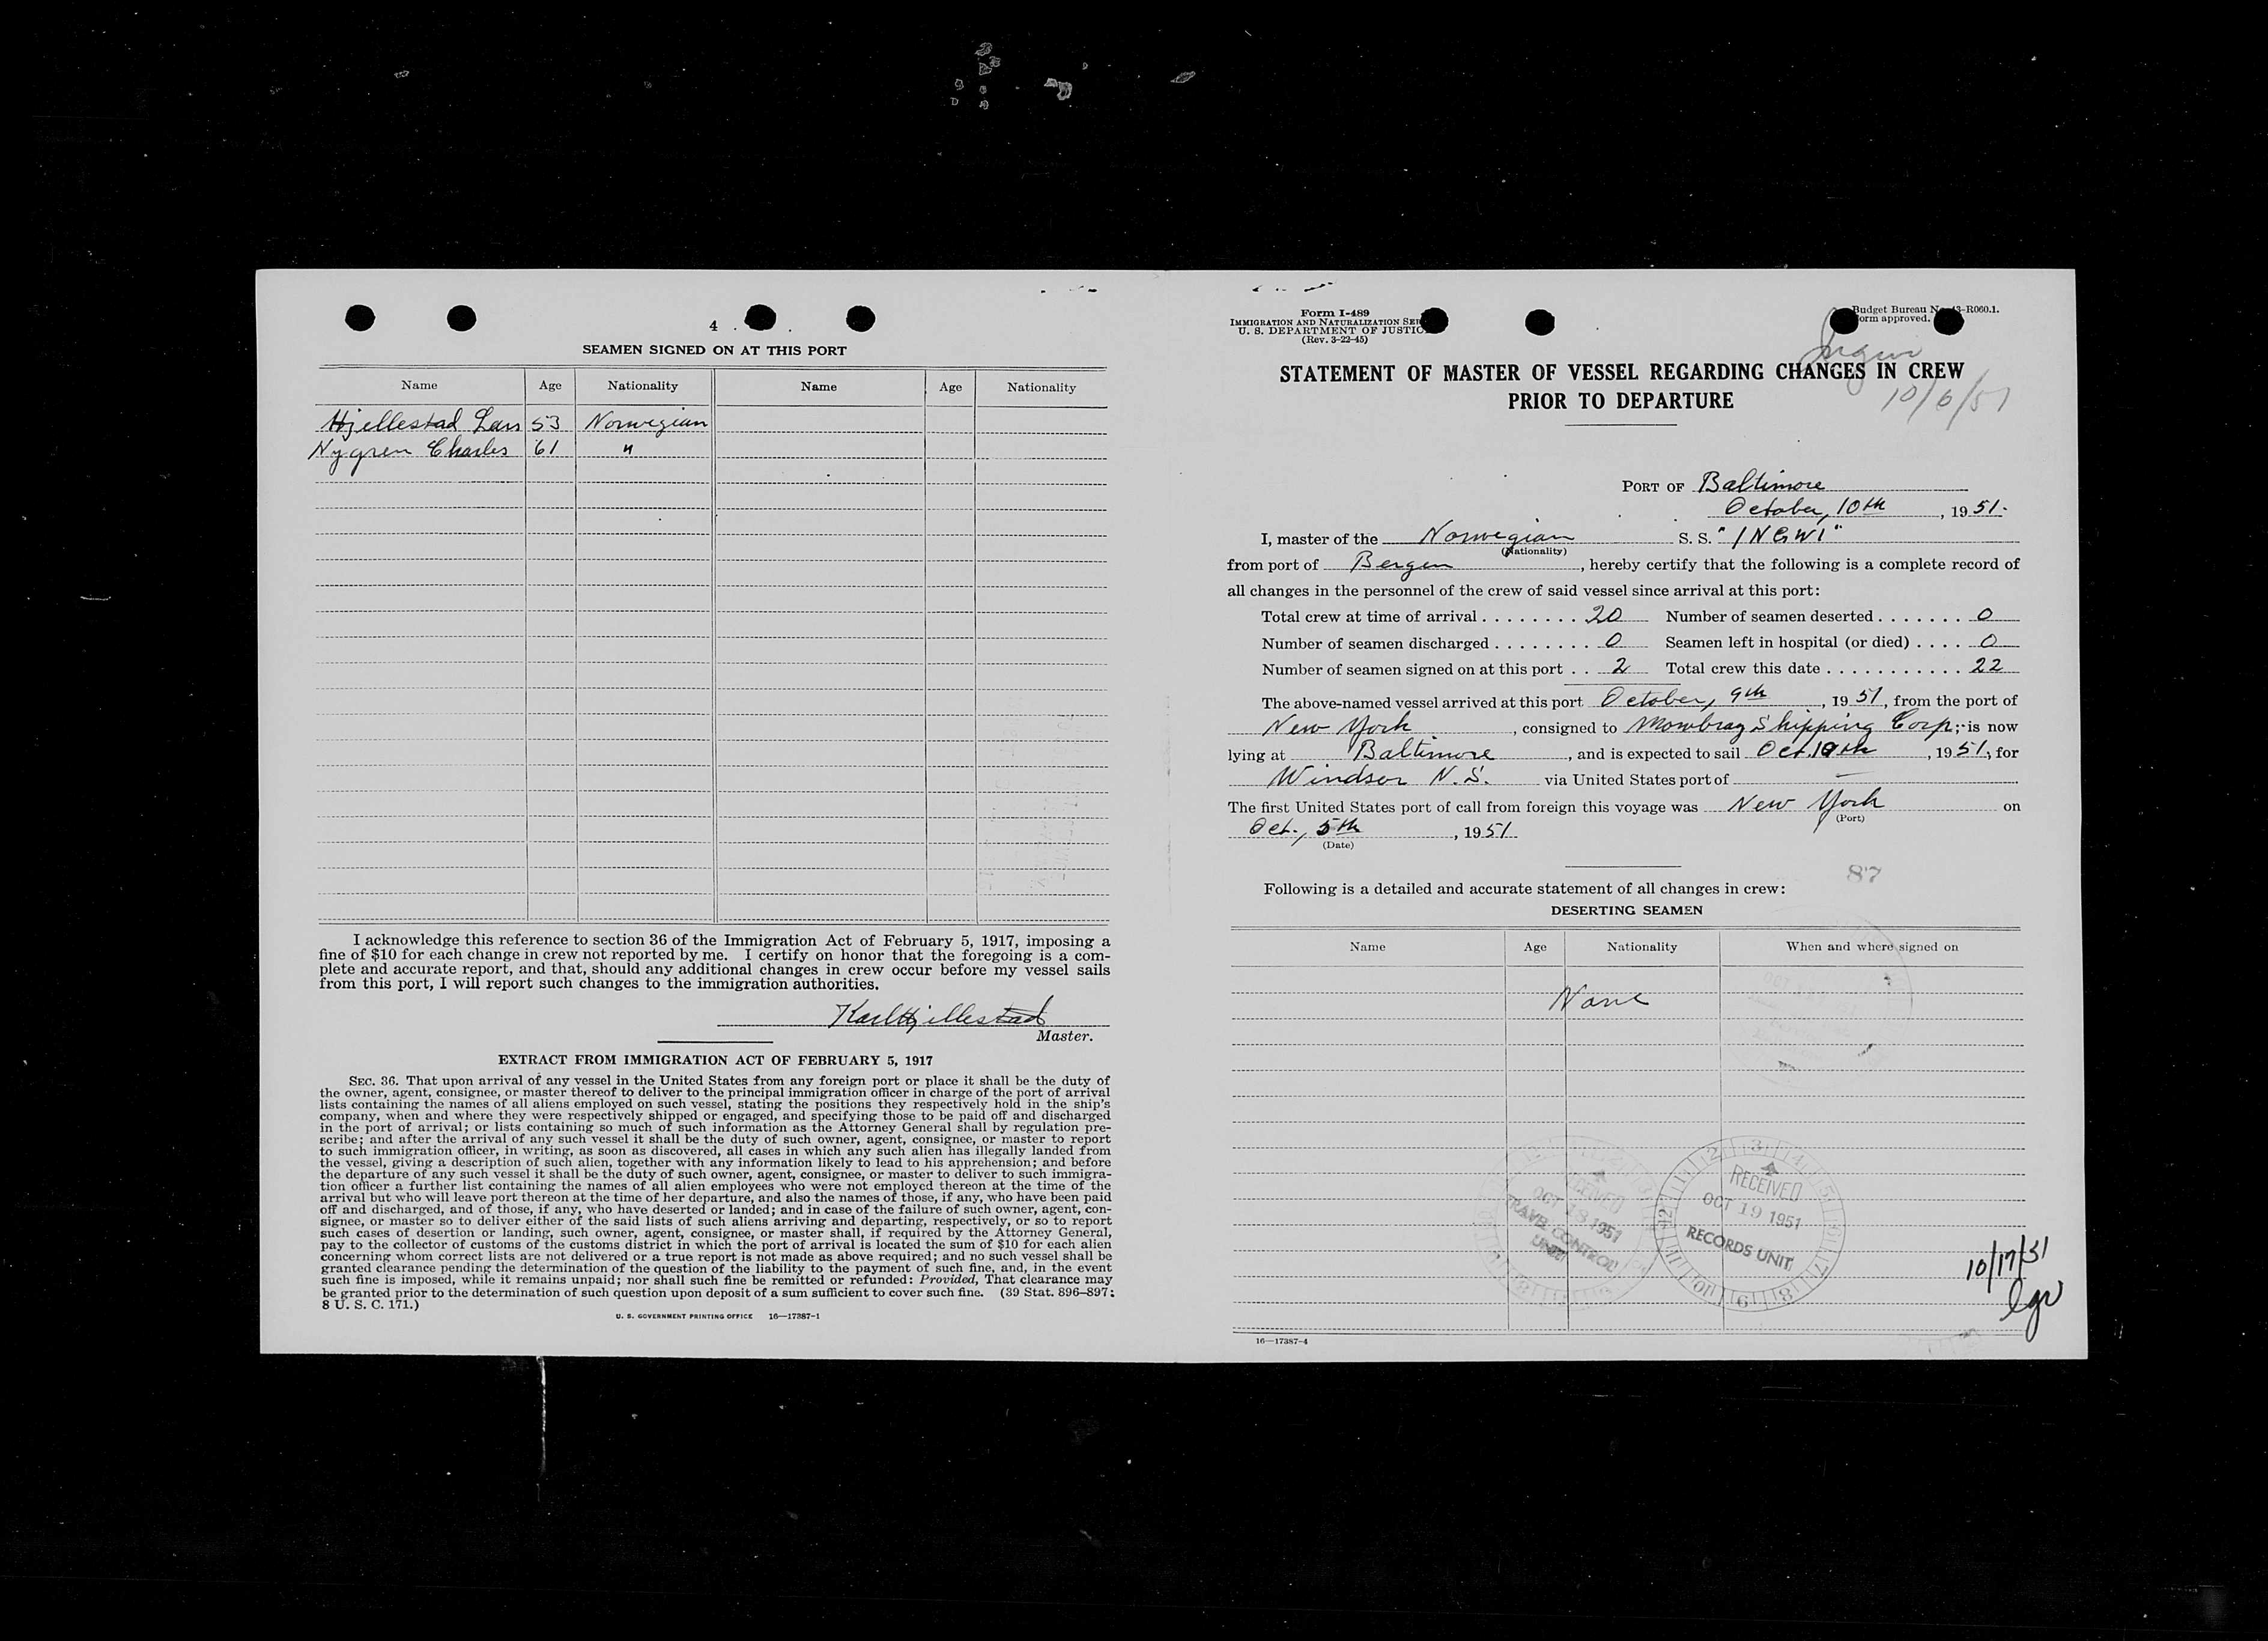 4
SEAMEN SIGNED ON AT THIS PORT
Name Age Nationality Name Age Nationality
Hjellestad Lars 53 Norwegian
Nygren Charles 61 "
I acknowledge this reference to section 36 of the Immigration Act of February 5, 1917, imposing a
fine of $10 for each change in crew not reported by me. I certify on honor that the foregoing is a com-
plete and accurate report, and that, should any additional changes in crew occur before my vessel sails
from this port, I will report such changes to the immigration authorities.
Karl Hjellestad
Master.
EXTRACT FROM IMMIGRATION ACT OF FEBRUARY 5, 1917
SEC. 36. That upon arrival of any vessel in the United States from any foreign port or place it shall be the duty of
the owner, agent, consignee, or master thereof to deliver to the principal immigration officer in charge of the port of arrival
lists containing the names of all aliens employed on such vessel, stating the positions they respectively hold in the ship's
company, when and where they were respectively shipped or engaged, and specifying those to be paid off and discharged
in the port of arrival; or lists containing so much of such information as the Attorney General shall by regulation pre-
scribe; and after the arrival of any such vessel it shall be the duty of such owner, agent, consignee, or master to report
to such immigration officer, in writing, as soon as discovered, all cases in which any such alien has illegally landed from
the vessel, giving a description of such alien, together with any information likely to lead to his apprehension; and before
the departure of any such vessel it shall be the duty of such owner, agent, consignee, or master to deliver to such immigra-
tion officer a further list containing the names of all alien employees who were not employed thereon at the time of the
arrival but who will leave port thereon at the time of her departure, and also the names of those, if any, who have been paid
off and discharged, and of those, if any, who have deserted or landed; and in case of the failure of such owner, agent, con-
signee, or master so to deliver either of the said lists of such aliens arriving and departing, respectively, or so to report
such cases of desertion or landing, such owner, agent, consignee, or master shall, if required by the Attorney General,
pay to the collector of customs of the customs district in which the port of arrival is located the sum of $10 for each alien
concerning whom correct lists are not delivered or a true report is not made as above required; and no such vessel shall be
granted clearance pending the determination of the question of the liability to the payment of such fine, and, in the event
such fine is imposed, while it remains unpaid; nor shall such fine be remitted or refunded: Provided, That clearance may
be granted prior to the determination of such question upon deposit of a sum sufficient to cover such fine. (39 Stat. 896–897;
8 U. S. C. 171.)
U. S. GOVERNMENT PRINTING OFFICE 16—17387-1
Form I-489
IMMIGRATION AND NATURALIZATION SER
U. S. DEPARTMENT OF JUSTIC
(Rev. 3-22-45)
Budget Bureau N 43-R060.1.
orm approved.
Ingwi
10/6/51
STATEMENT OF MASTER OF VESSEL REGARDING CHANGES IN CREW
PRIOR TO DEPARTURE
PORT OF Baltimore
October, 10th, 1951.
I, master of the Norwegian S. S. "INGWI"
(Nationality)
from port of Bergen, hereby certify that the following is a complete record of
all changes in the personnel of the crew of said vessel since arrival at this port:
Total crew at time of arrival 20 Number of seamen deserted 0
Number of seamen discharged 0 Seamen left in hospital (or died) 0
Number of seamen signed on at this port 2 Total crew this date 22
The above-named vessel arrived at this port October, 9th, 1951, from the port of
New York, consigned to Mowbray Shipping Corp; is now
lying at Baltimore, and is expected to sail Oct. 10th, 1951, for
Windsor N.S. via United States port of —
The first United States port of call from foreign this voyage was New York on
(Port)
Oct., 5th, 1951
(Date)
87
Following is a detailed and accurate statement of all changes in crew:
DESERTING SEAMEN
Name Age Nationality When and where signed on
None
RECEIVED
OCT 18 1951
TRAVEL CONTROL
UNIT
RECEIVED
OCT 19 1951
RECORDS UNIT
10/17/51
lgw
16—17387-4